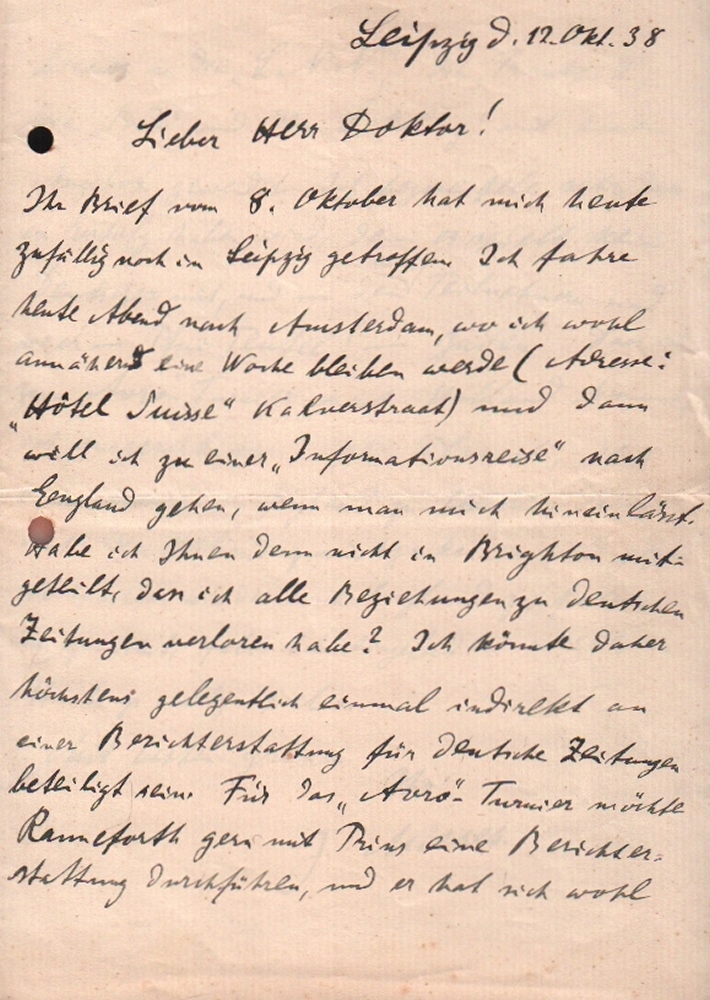 Leipzig d. 12. Okt. 38
Lieber Herr Doktor!
Ihr Brief vom 8. Oktober hat mich heute
zufällig noch in Leipzig getroffen. Ich fahre
heute Abend nach Amsterdam, wo ich wohl
annähernd eine Woche bleiben werde (Adresse:
„Hôtel Suisse" Kalverstraat) und dann
will ich zu einer „Informationsreise" nach
England gehen, wenn man mich hineinlässt.
Habe ich Ihnen denn nicht in Brighton mit-
geteilt, dass ich alle Beziehungen zu deutschen
Zeitungen verloren habe? Ich könnte daher
höchstens gelegentlich einmal indirekt an
einer Berichterstattung für deutsche Zeitungen
beteiligt sein. Für das „Avro"-Turnier möchte
Ranneforth gern mit Prins eine Berichter-
stattung durchführen, und er hat sich wohl